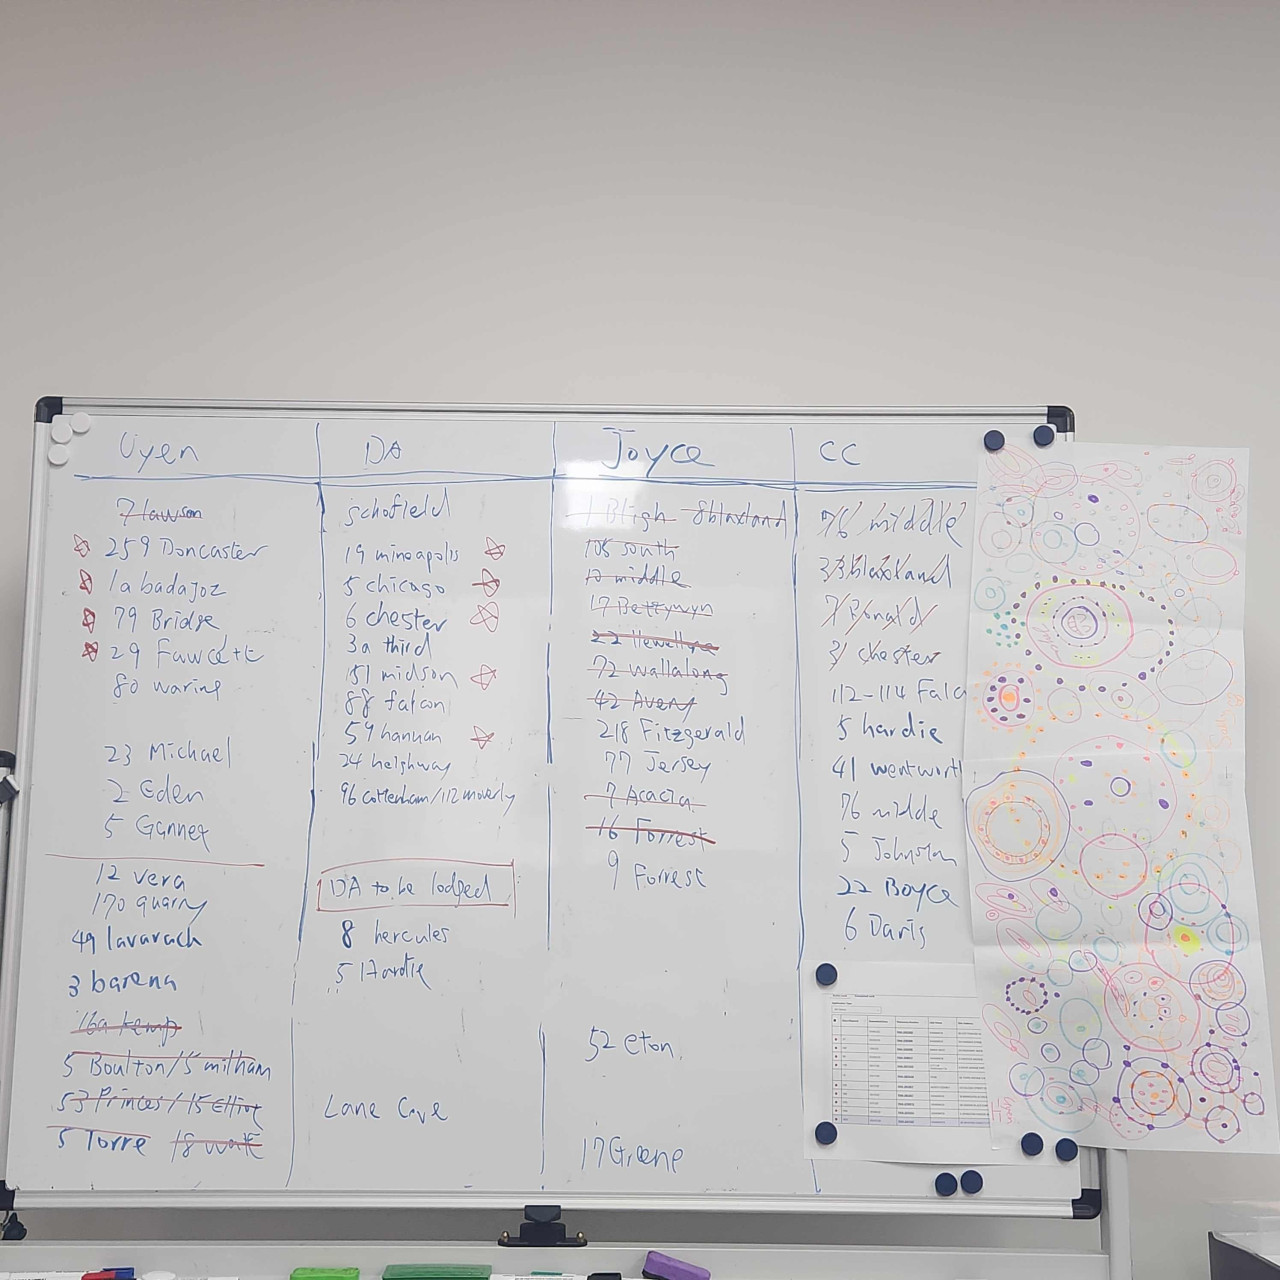 Uyen
7 lawson
259 Doncaster
1a badajoz
79 Bridge
29 Fawcett
80 waring
23 Michael
2 Eden
5 Gannet
12 vera
170 quarry
49 lavarack
3 barena
16a kemp
5 Boulton/5 miltham
53 Princes/15 Elliot
5 Torre 18 watt
DA
schofield
19 mineapolis
5 chicago
6 chester
3a third
151 midson
88 falcon
59 hannan
24 heighway
96 cottenham/112 moverly
DA to be lodged
8 hercules
5 Hardie
Lane Cove
Joyce
1 Bligh 8 blaxland
108 south
10 middle
17 Bettywyn
22 llewellyn
72 wallalong
42 Avery
218 Fitzgerald
77 Jersey
7 Acacia
16 Forrest
9 Forrest
52 eton
17 Greene
CC
76 middle
33 blaxland
7 Ronald
31 chester
112-114 Falc
5 hardie
41 wentworth
76 middle
5 Johnston
22 Boyce
6 Davis